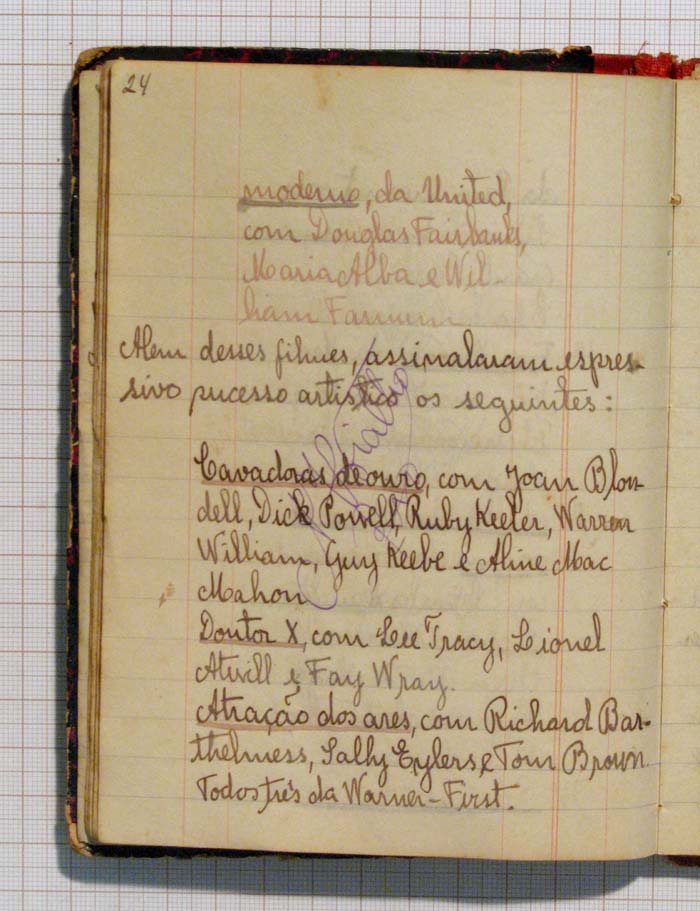 24
moderno, da United,
com Douglas Fairbanks,
Maria Alba e Wil-
liam Farnum
Alem desses filmes, assinalaram expres-
sivo sucesso artistico os seguintes:
Cavadoras de ouro, com Joan Blon-
dell, Dick Powell, Ruby Keeler, Warren
William, Guy Keebe e Aline Mac
Mahon
Doutor X, com Lee Tracy, Lionel
Atwill e Fay Wray.
Atração dos ares, com Richard Bar-
thelmess, Sally Eylers e Tom Brown.
Todos três da Warner-First.